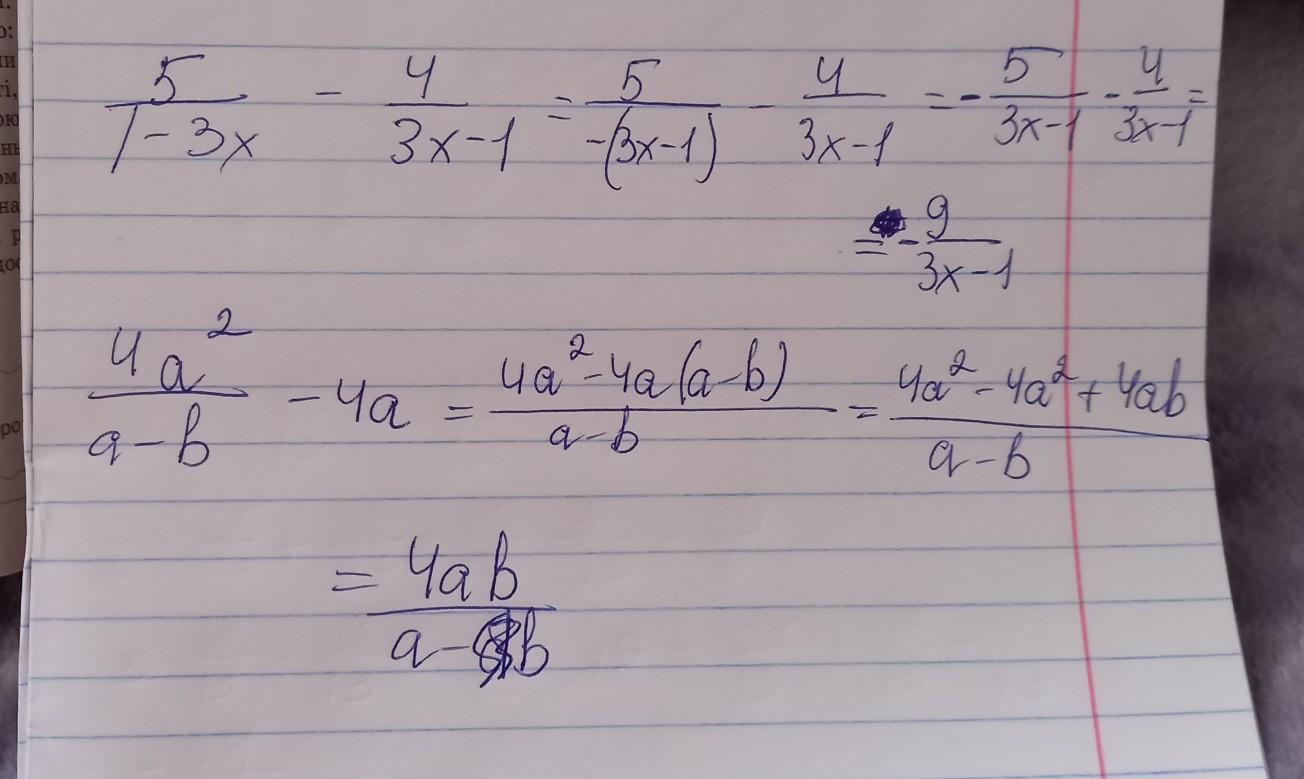 5/(1-3x) - 4/(3x-1) = 5/(-(3x-1)) - 4/(3x-1) = -5/(3x-1) - 4/(3x-1) =
= -9/(3x-1)
4a²/(a-b) - 4a = (4a²-4a(a-b))/(a-b) = (4a²-4a²+4ab)/(a-b)
= 4ab/(a-b)